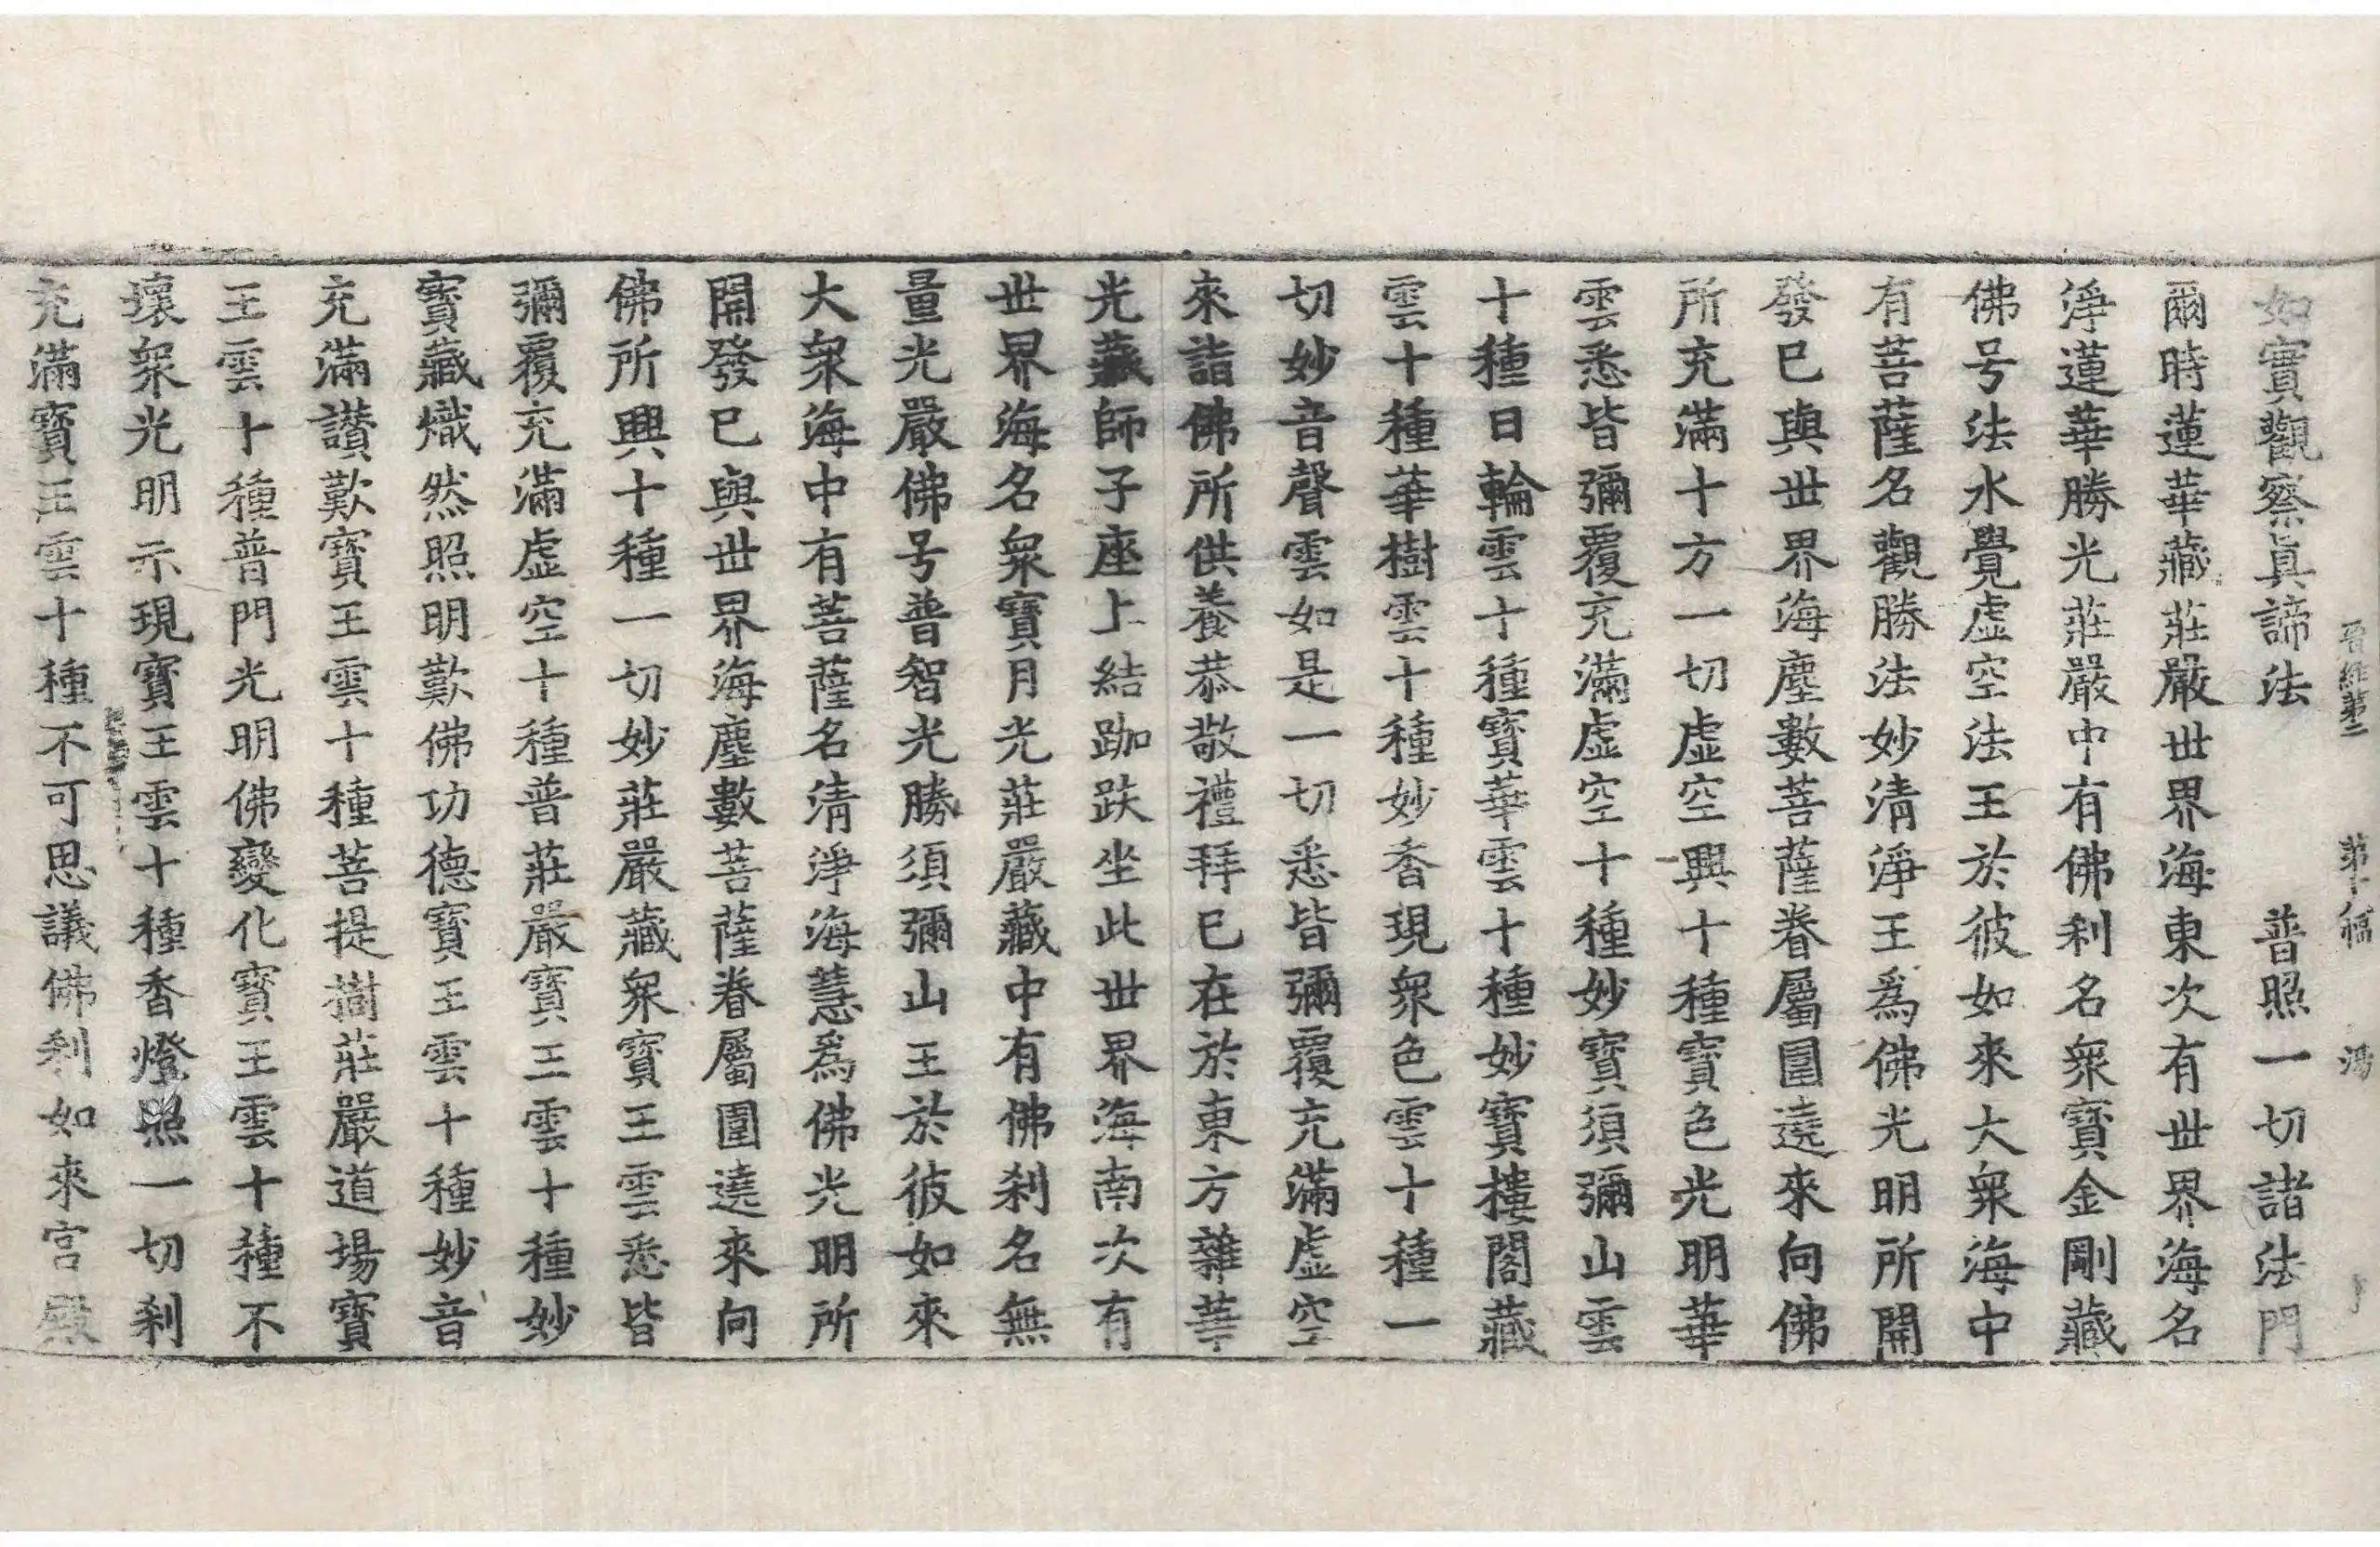 晋經第二　第十八幅　鴻
如實觀察眞諦法　普照一切諸法門
爾時蓮華藏莊嚴世界海東次有世界海名
淨蓮華勝光莊嚴中有佛刹名衆寶金剛藏
佛号法水覺虛空法王於彼如來大衆海中
有菩薩名觀勝法妙清淨王爲佛光明所開
發已與世界海塵數菩薩眷屬圍遶來向佛
所充滿十方一切虛空興十種寶色光明華
雲悉皆彌覆充滿虛空十種妙寶須彌山雲
十種日輪雲十種寶華雲十種妙寶樓閣藏
雲十種華樹雲十種妙香現衆色雲十種一
切妙音聲雲如是一切悉皆彌覆充滿虛空
來詣佛所供養恭敬禮拜已在於東方雜華
光藏師子座上結跏趺坐此世界海南次有
世界海名衆寶月光莊嚴藏中有佛刹名無
量光嚴佛号普智光勝須彌山王於彼如來
大衆海中有菩薩名清淨海慧爲佛光明所
開發已與世界海塵數菩薩眷屬圍遶來向
佛所興十種一切妙莊嚴藏衆寶王雲悉皆
彌覆充滿虛空十種普莊嚴寶王雲十種妙
寶藏熾然照明歎佛功德寶王雲十種妙音
充滿讃歎寶王雲十種菩提樹莊嚴道場寶
王雲十種普門光明佛變化寶王雲十種不
壞衆光明示現寶王雲十種香燈照一切刹
充滿寶王雲十種不可思議佛刹如來宮殿